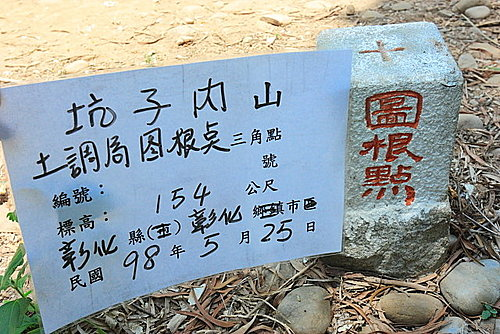 坑子内山
土調局图根点三角點
號
編號：
標高：154公尺
彰化縣(市)彰化鄉鎮市區
民國98年5月25日
十
圖根點